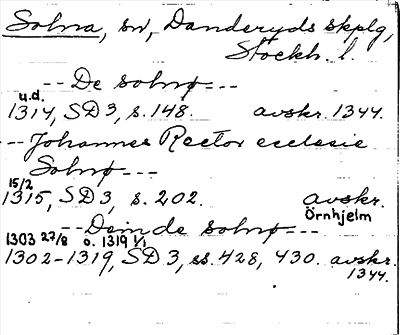 Solna, sn, Danderyds skplg,
Stockh. l.
-- De solnø --
u.d.
1314, SD 3, s. 148. avskr. 1344.
-- Johannes Rector ecclesie
Solnø ---
15/2
1315, SD 3, s. 202. avskr.
Örnhjelm
-- Deinde solnø --
1303 27/8 o. 1319 1/1
1302-1319, SD 3, ss. 428, 430. avskr.
1344.